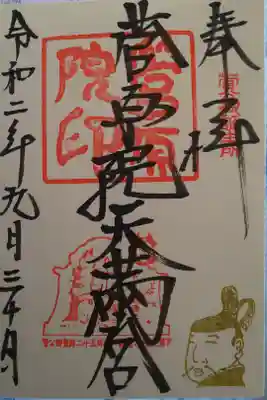 奉拝
菅原院天満宮
令和二年九月三十日
菅原院印